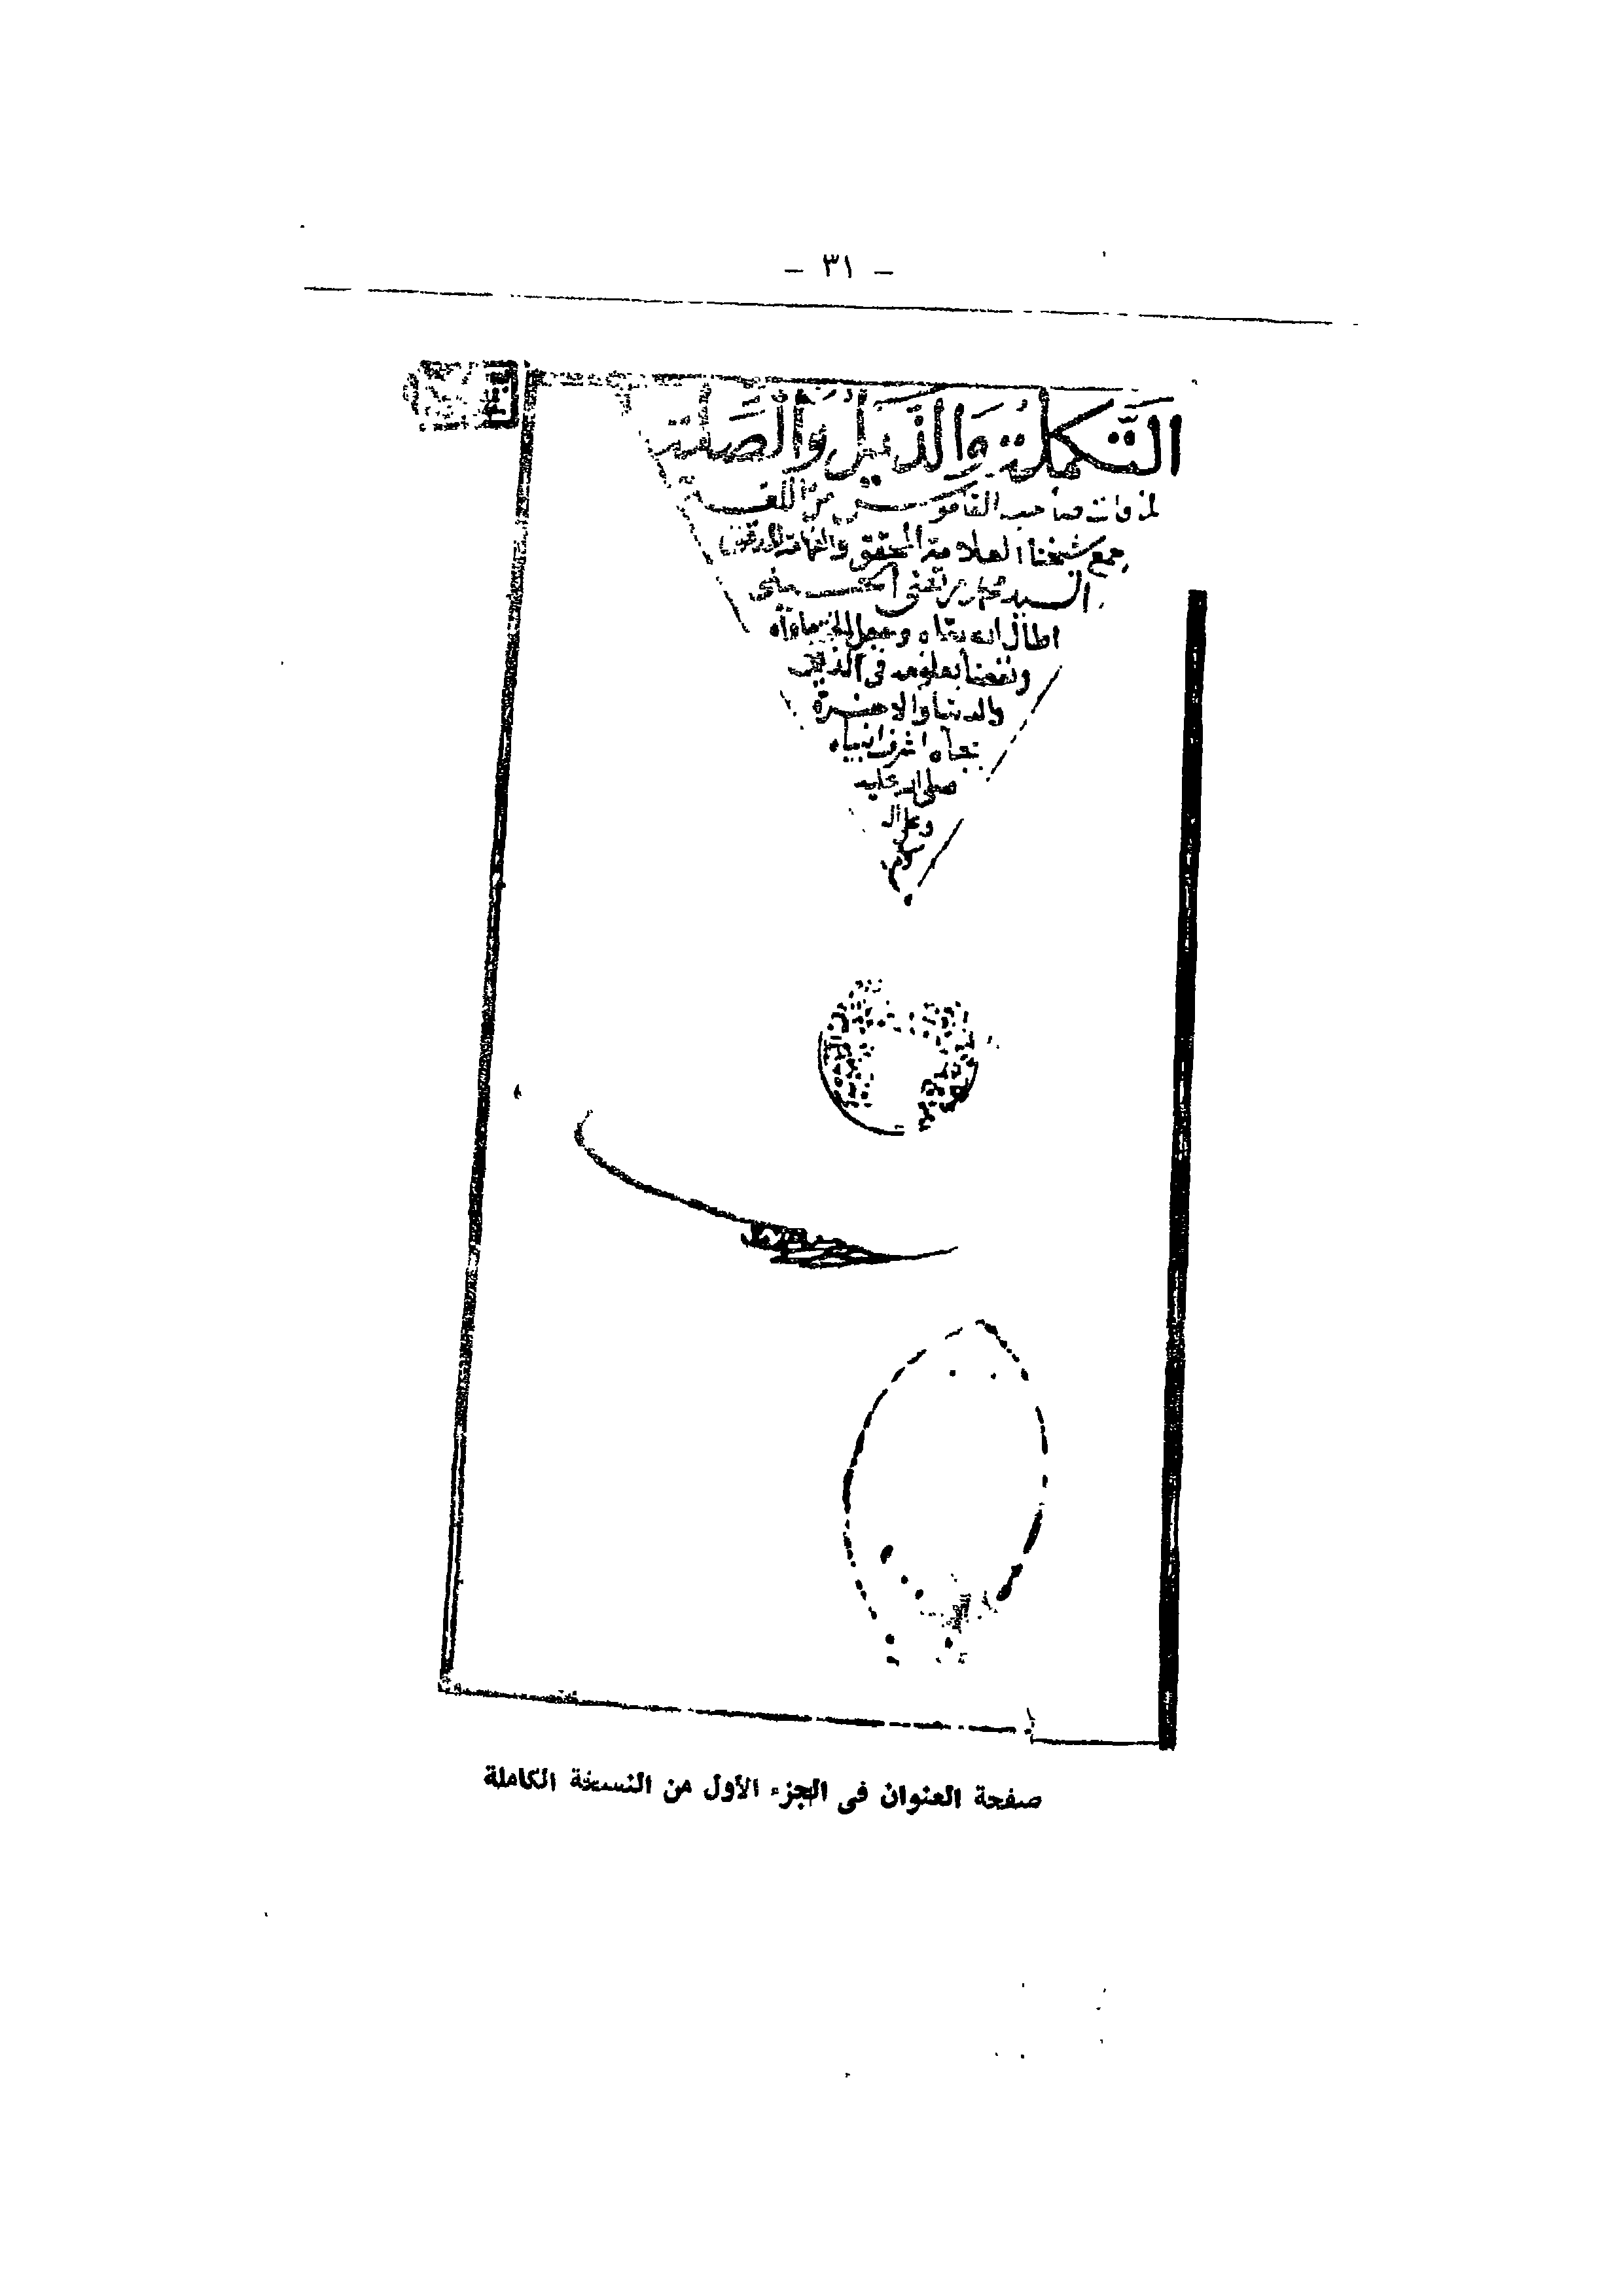 - ٣١ -
التكملة والذيل والصلة
لما فات صاحب القاموس من اللغة
جمع شيخنا العلامة المحقق والفهامة المدقق
السيد محمد مرتضى الحسيني
اطال الله بقاه وجعل الجنة مأواه
ونفعنا بعلومه في الدين
والدنيا والاخرة
بجاه اشرف انبياه
صلى الله عليه
وعلى آله
وسلم
صفحة العنوان فى الجزء الأول من النسخة الكاملة